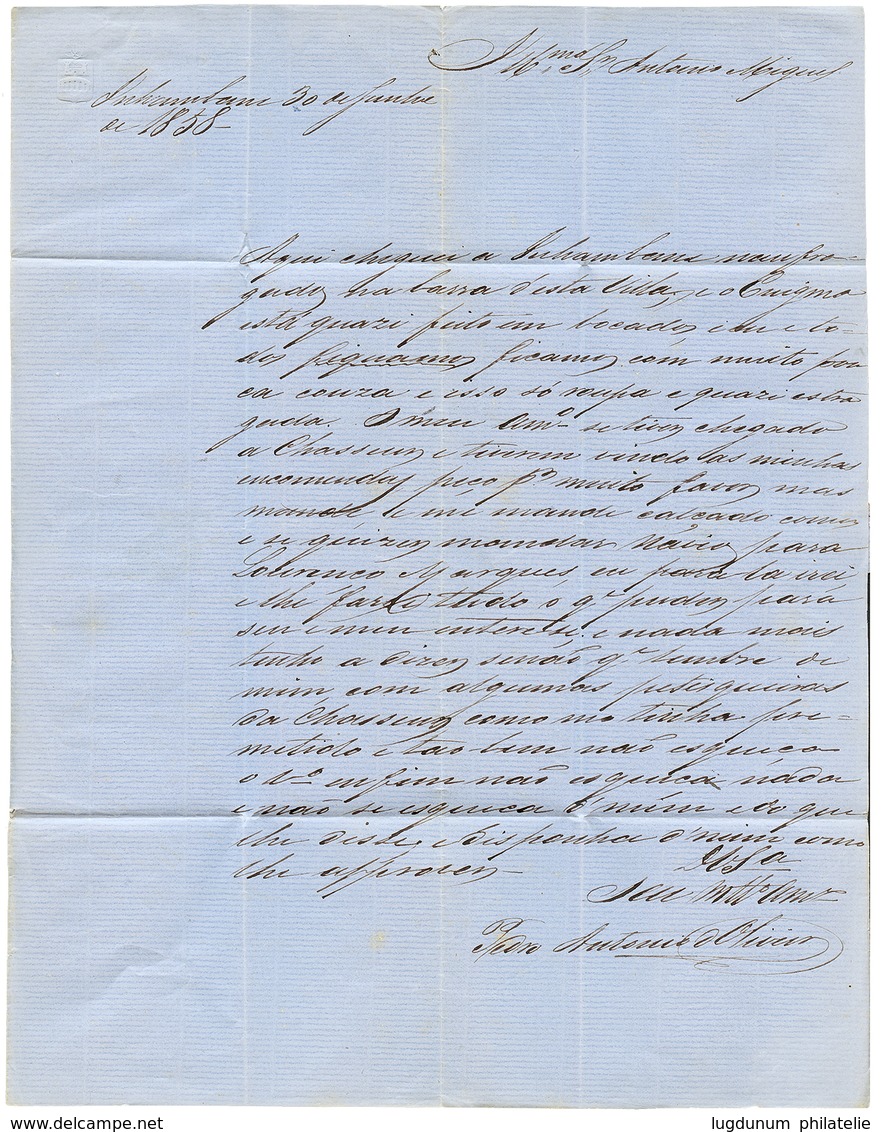 Illmo. Sr. Antonio Miguel
Inhambane 30 de Junho
de 1858
Aqui cheguei a Inhambane naufra-
gado, na barra d'esta Villa, e o Enigma
está quazi feito em bocados, e eu e to-
dos fiquamos ficamos com muito pou
ca couza e isso só roupa e quazi estra
gada. O meu Amo. se tiver chegado
a Chasseur, e tiverem vindo as minhas
encomendas peço pr. muito favor, mas
mande, e me mande calçado
e se quizer mandar Navio, para
Lourenco Marques, eu para la irei,
e lhe farei tudo o qe. puder para
seu e meu interesse, e nada mais
tenho a dizer, senão qe. lembre de
mim, com algumas petisqueiras
da Chasseur, como me tinha pre-
metido e tao bem não esqueca
o Vo. enfim não esqueca nada
e não se esqueca d'mim e do que
lhe disse, disponha d'mim como
lhe aprover,
De VSa
Seu Mtto. Amo.
Pedro Antonio d'Oliveira
www.delcampe.net
lugdunum philatelie